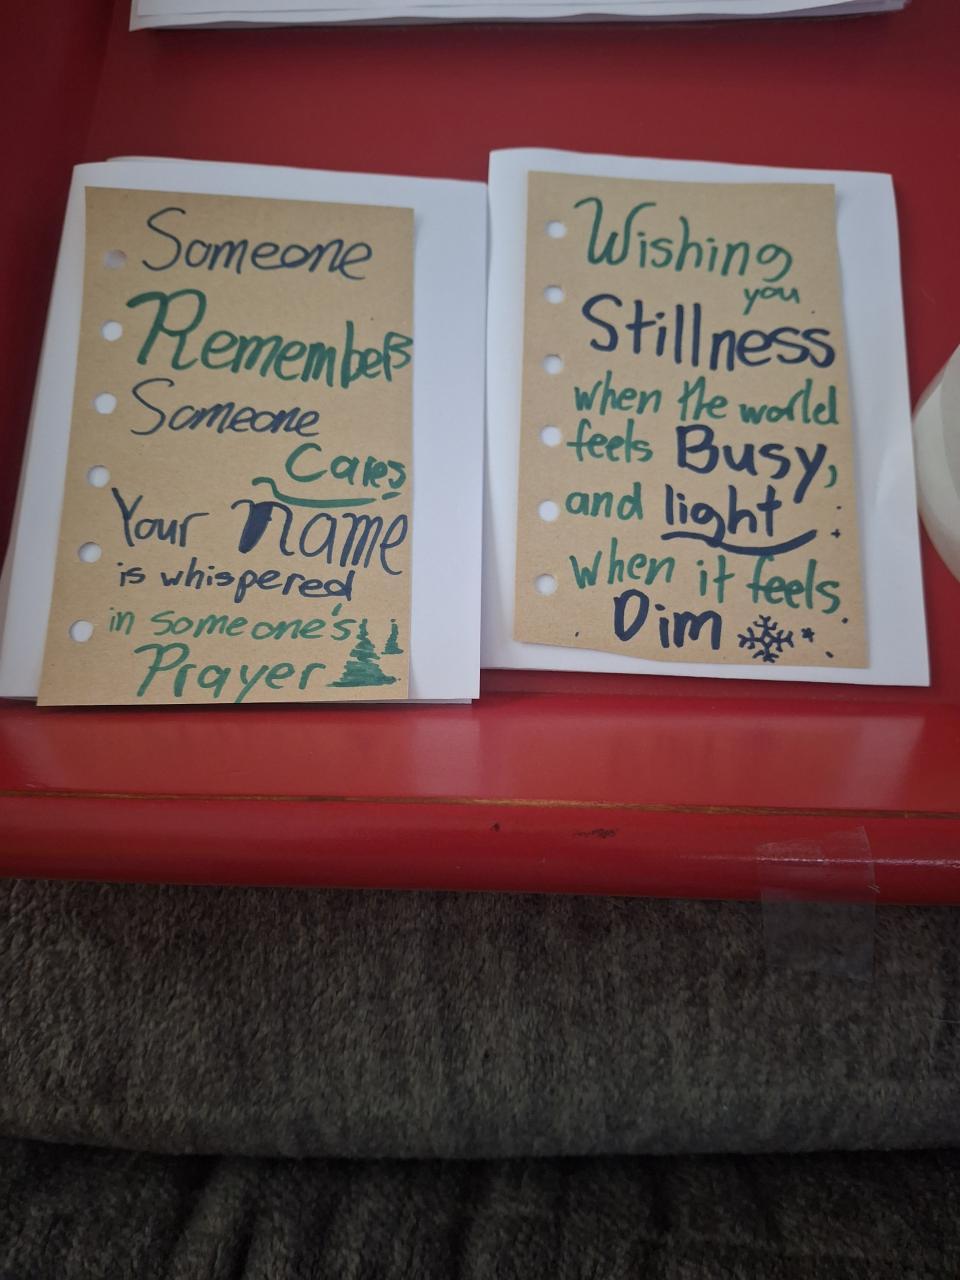 Someone
Remembers
Someone
Cares
Your name
is whispered
in someone's
Prayer
Wishing
you
Stillness
when the world
feels Busy,
and light
when it feels
Dim